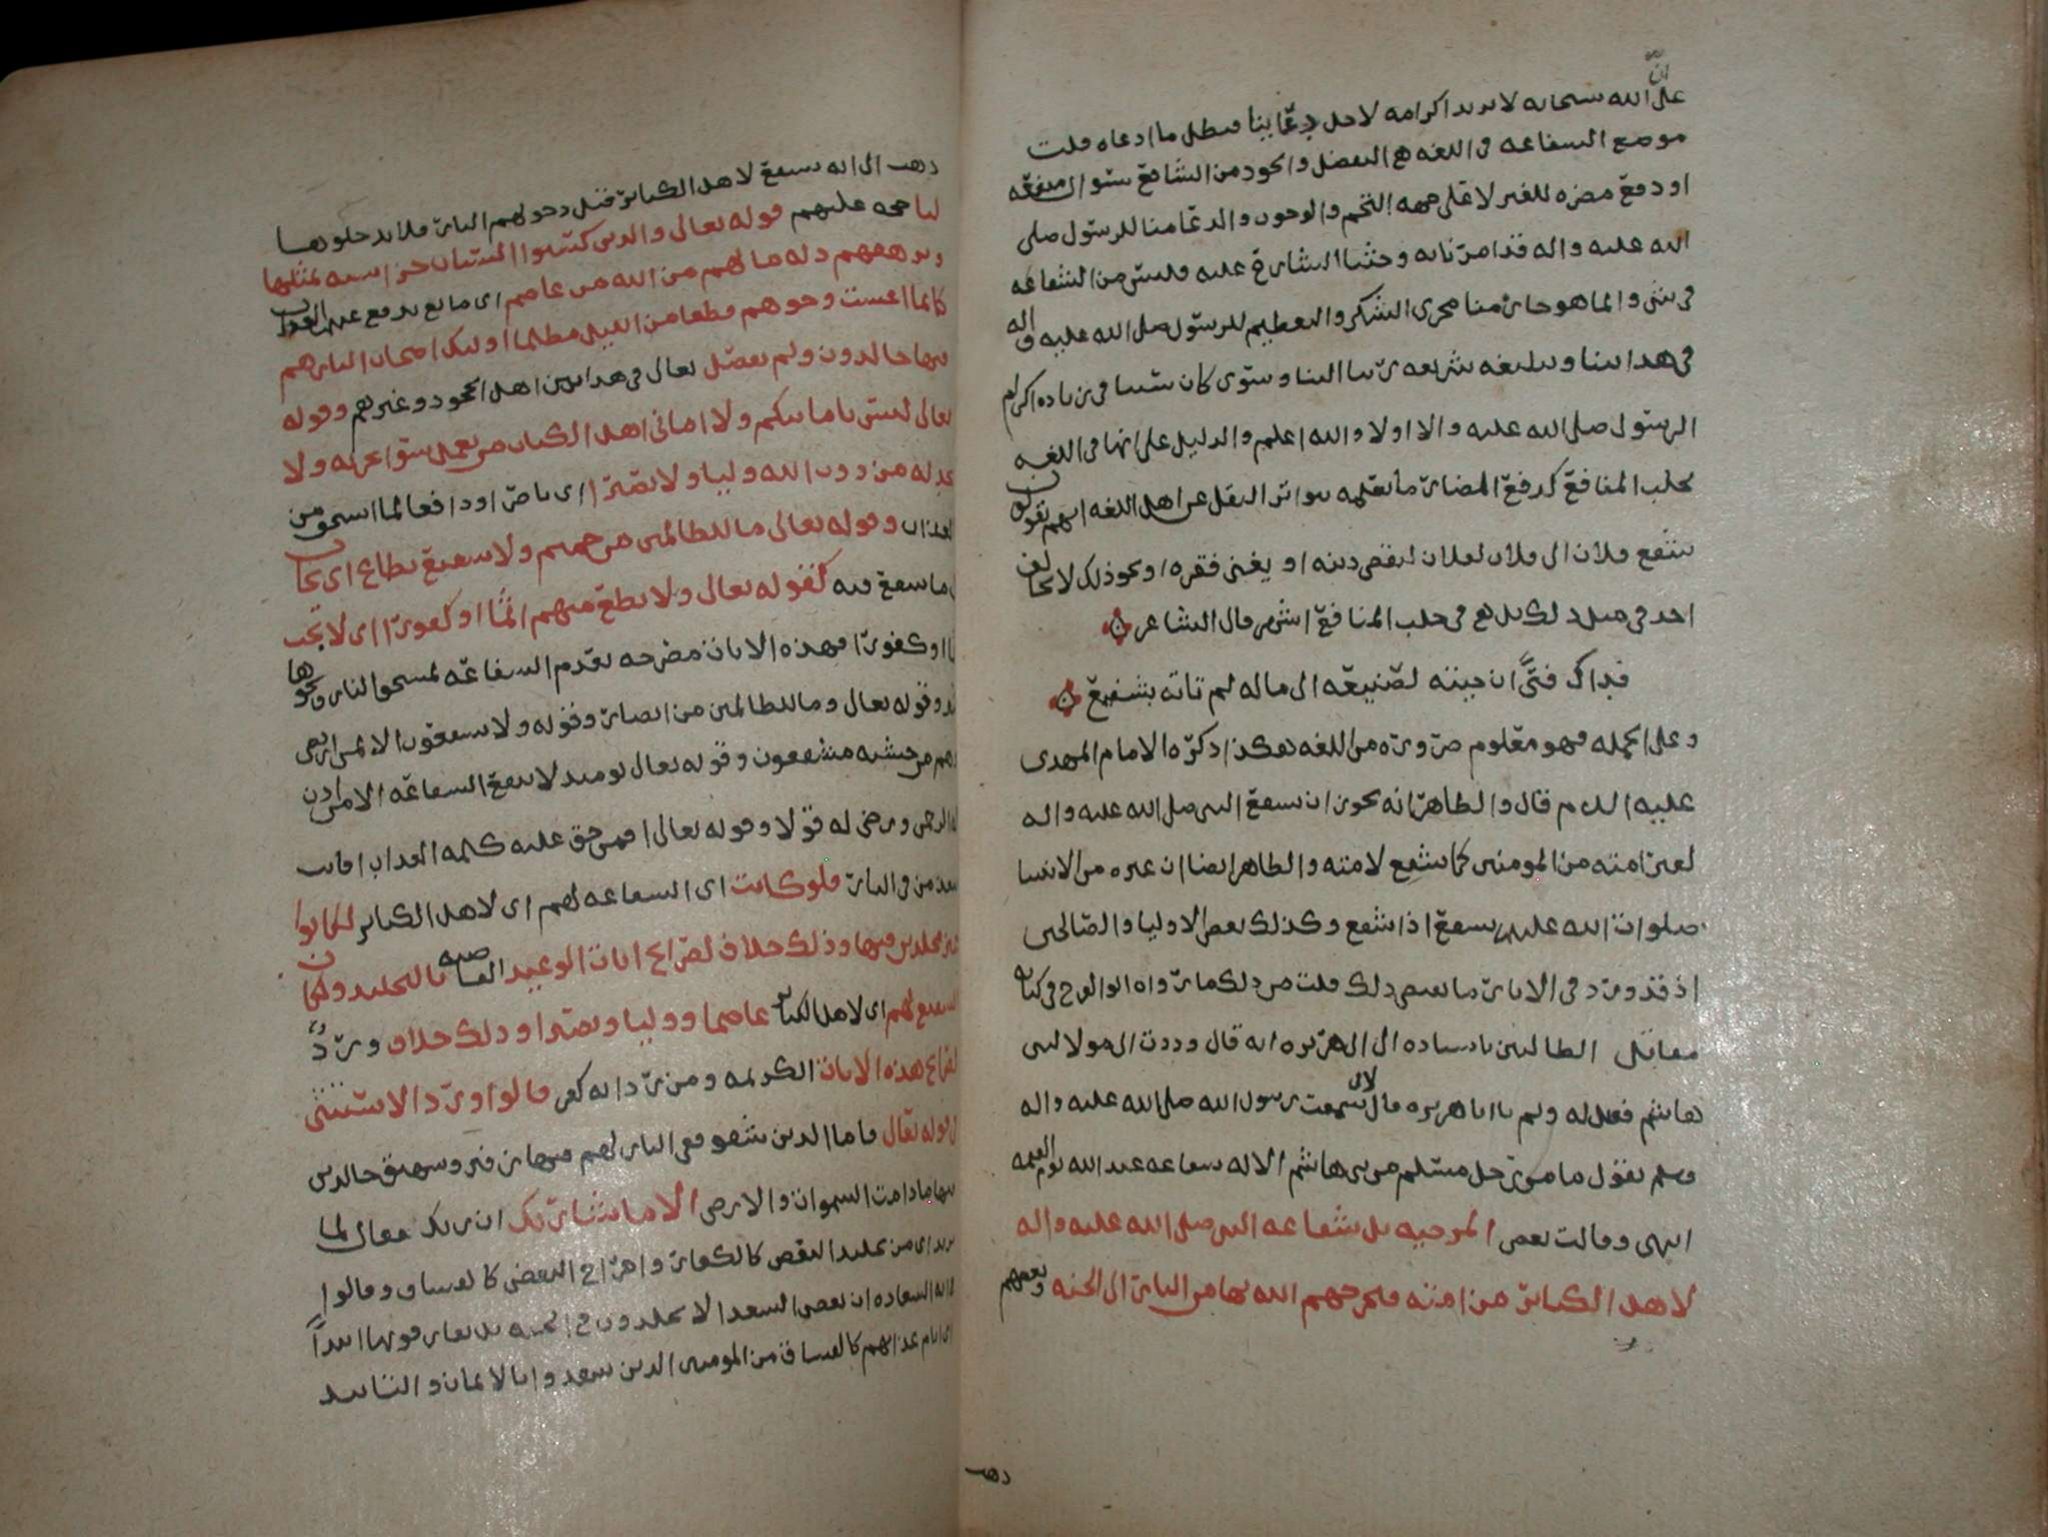 على ان الله سبحانه لا يريد اكرامه لاجل دعائنا فبطل ما ادعاه قلت
موضع الشفاعه في اللغه هو التفضل والجود من الشافع سوا لمنفعه
او دفع مضره للغير لا على جهه التحتم والوجوب والدعا منا للرسول صلى
الله عليه واله قد امرنا به وحثنا الشارع عليه فليس من الشفاعه
في شي وانما هو جار منا مجرى الشكر والتعظيم للرسول صلى الله عليه واله
في هدايتنا وتبليغه شريعه ربنا الينا وسوى كان سببا في زياده اكرام
الرسول صلى الله عليه واله ام لا والله اعلم والدليل على انها في اللغه
لجلب المنافع كدفع المضار ما نعلمه بتواتر النقل عن اهل اللغه انهم يقولون
شفع فلان الى فلان لفلان ليقضي دينه او يغني فقره او نحو ذلك لا يخالف
احد في ذلك بل هو في جلب المنافع اشهر قال الشاعر
فذاك فتى ان جئته لصنيعه الى ماله لم تاته بشفيع
وعلى الجمله فهو معلوم ضروره من اللغه هكذا ذكره الامام المهدي
عليه السلام قال والظاهر انه يجوز ان يشفع النبي صلى الله عليه واله
لغير امته من المومنين كما يشفع لامته والظاهر ايضا ان غيره من الانبيا
صلوات الله عليهم يشفع اذا شفع وكذلك بعض الاوليا والصالحين
اذ قد ورد في الاثار ما يقتضي ذلك قلت من ذلك ما رواه ابو الفرج في كتابه
مقاتل الطالبين باسناده الى ابي هريره انه قال وددت اني مولا لبني
هاشم فقيل له ولم يا ابا هريره قال لاني سمعت رسول الله صلى الله عليه واله
وسلم يقول ما من رجل مسلم من بني هاشم الا له شفاعه عند الله يوم القيمه
انتهى وقالت بعض المرجيه بل شفاعه النبي صلى الله عليه واله
لاهل الكبائر من امته فيخرجهم الله بها من النار الى الجنه وبعضهم
ذهب
ذهب الى انه يشفع لاهل الكبائر قبل دخولهم النار فلا يدخلونها
لنا حجه عليهم قوله تعالى والذين كسبوا السيئات جزا سيئه بمثلها
وترهقهم ذله ما لهم من الله من عاصم اي مانع يدفع عنهم العذاب
كانما اغشيت وجوههم قطعا من الليل مظلما اولئك اصحاب النار هم
فيها خالدون ولم يفصل تعالى في هذا بين اهل الجحود وغيرهم وقوله
تعالى ليس بامانيكم ولا اماني اهل الكتاب من يعمل سوا يجز به ولا
يجد له من دون الله وليا ولا نصيرا اي ناصرا ودافعا لما استحق من
العذاب وقوله تعالى ما للظالمين من حميم ولا شفيع يطاع اي يجاب
ما شفع فيه كقوله تعالى ولا تطع منهم اثما او كفورا اي لا تجب
اثما او كفورا فهذه الايات مصرحه بعدم الشفاعه لمستحق النار ونحوها
وقوله تعالى وما للظالمين من انصار وقوله ولا يشفعون الا لمن ارتضى
وهم من خشيته مشفقون وقوله تعالى يومئذ لا تنفع الشفاعه الا من اذن
له الرحمن ورضي له قولا وقوله تعالى افمن حق عليه كلمه العذاب افانت
تنقذ من في النار فلو كانت اي الشفاعه لهم اي لاهل الكبائر لكانوا
غير مخلدين فيها وذلك خلاف لصرائح ايات الوعيد القاضيه بالتخليد ولكان
الشفيع لهم اي لاهل الكبائر عاصما ووليا ونصيرا وذلك خلاف ورد
لصرائح هذه الايات الكريمه ومن رد ايه كفر قالوا ورد الاستثنى
في قوله تعالى فاما الذين شقوا ففي النار لهم فيها زفير وشهيق خالدين
فيها ما دامت السموات والارض الا ما شا ربك ان ربك فعال لما
يريد اي من تخليد البعض كالكفار واخراج البعض كالفساق وقالوا
ايه السعاده ان بعض السعدا لا يخلدون في الجنه بل يفارقونها ابدا
اي ايام عذابهم كالفساق من المومنين الذين سعدوا بالايمان والتابيد